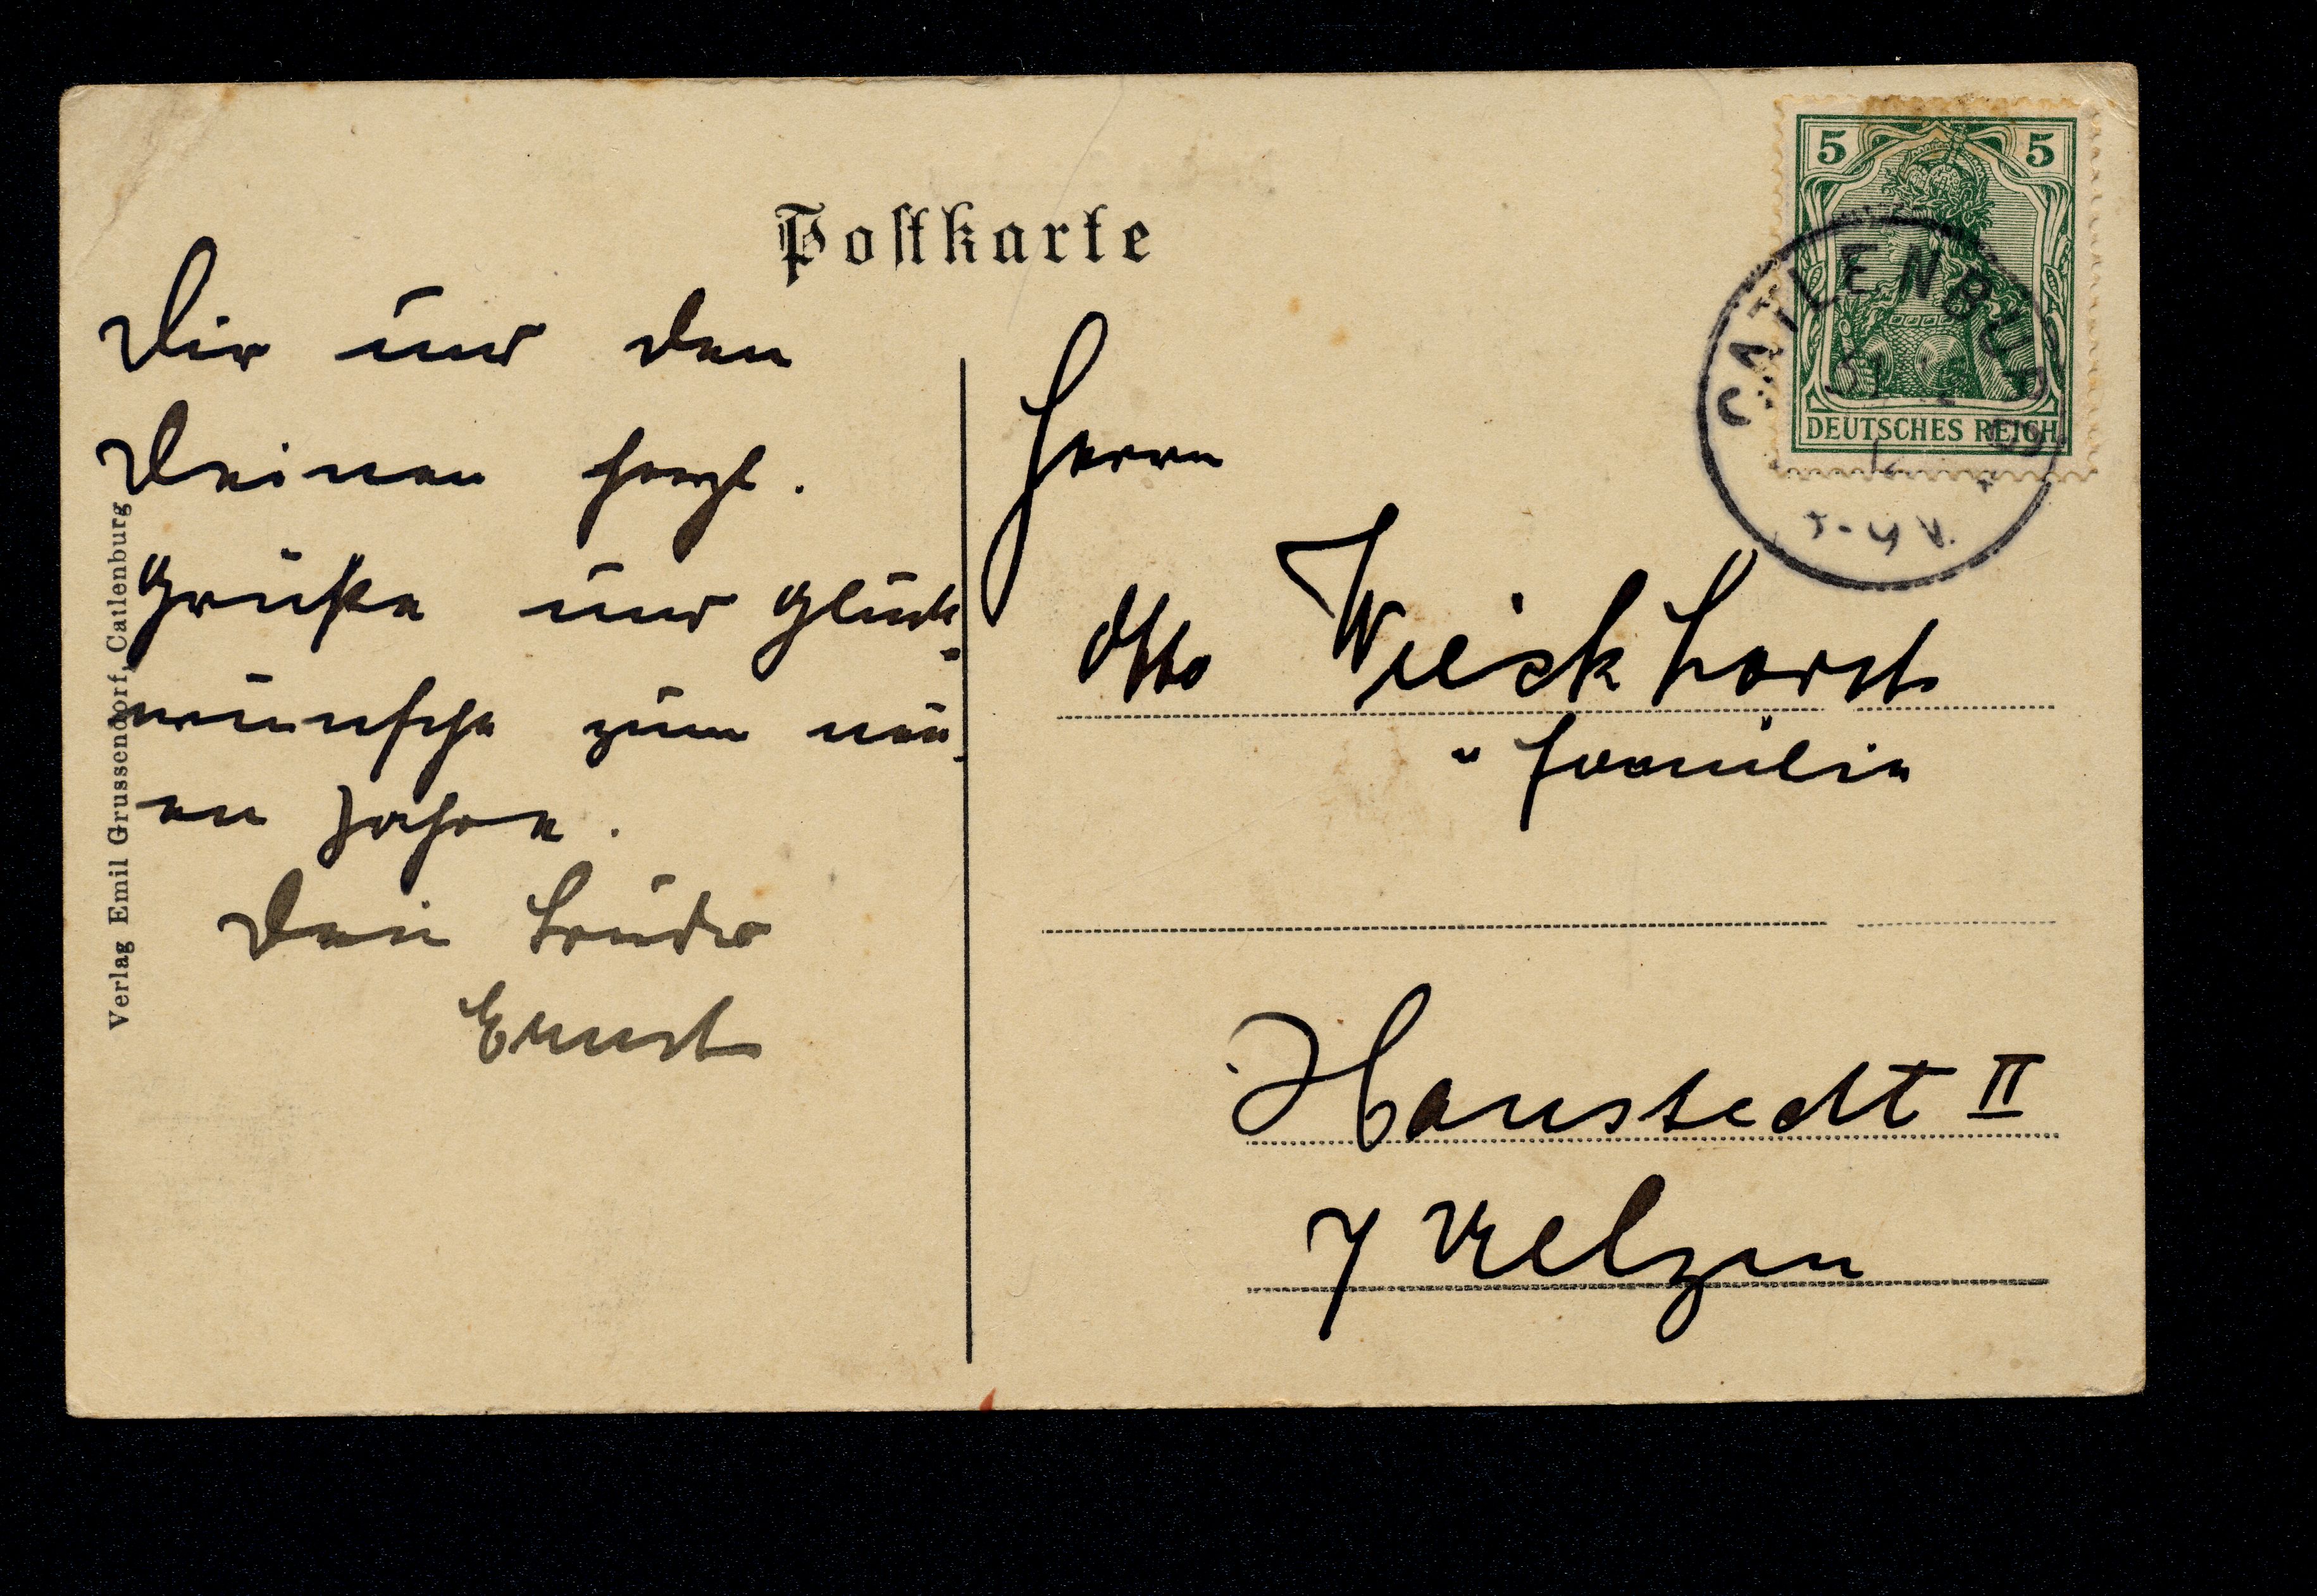 Postkarte
Dir und den
Deinen herzl.
Grüße und Glück-
wünsche zum neu-
en Jahre.
Dein Bruder
Ernst
Verlag Emil Grussendorf, Catlenburg
5 5
DEUTSCHES REICH
CATLENBURG
Herrn
Otto Wieckhorst
u Familie
Hanstedt II
Uelzen